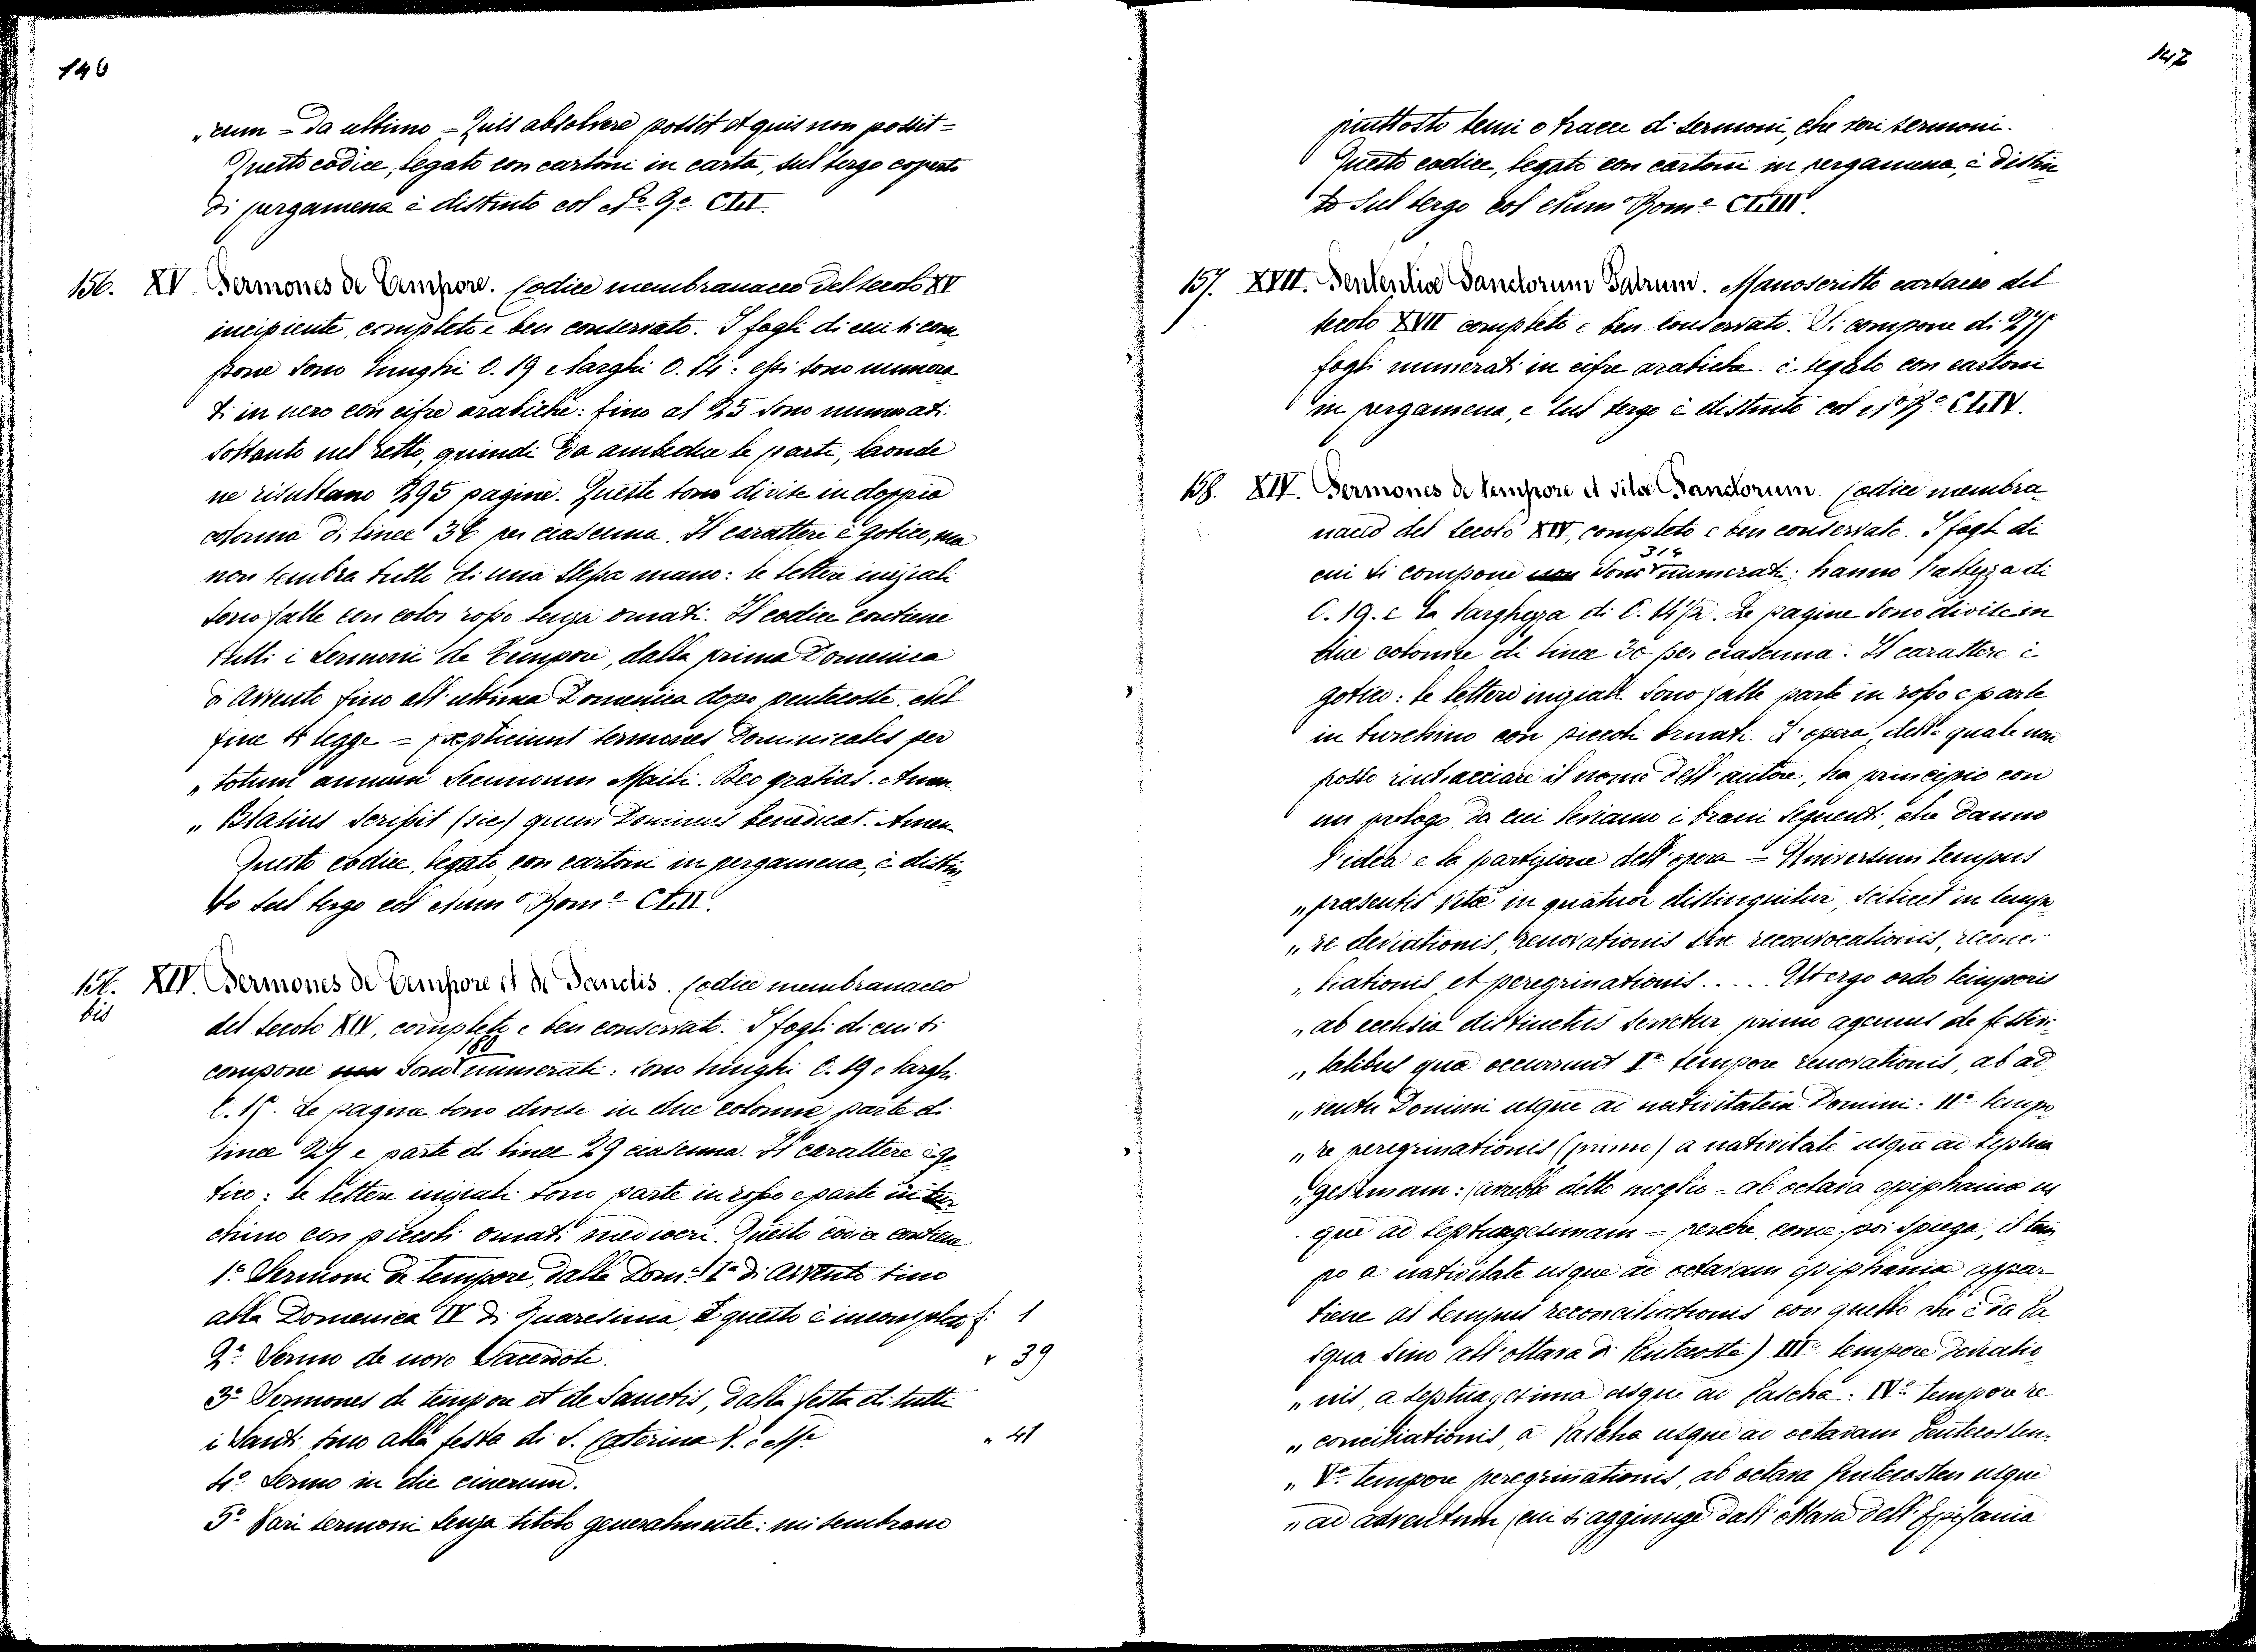 146
„rum = da ultimo = Quis absolvere possit et quis non possit =
Questo codice, legato con cartoni in carta, sul tergo coperto
di pergamena è distinto col N.o R.o CLI.
156. XV Sermones de Tempore. Codice membranaceo del secolo XV
incipiente, completo e ben conservato. I fogli di cui si com
pone sono lunghi C. 19 e larghi C. 14: essi sono numera
ti in nero con cifre arabiche: fino al 25 sono numerati
soltanto nel retto, quindi da ambedue le parti, laonde
ne risultano 295 pagine. Queste sono divise in doppia
colonna di linee 36 per ciascuna. Il carattere è gotico, ma
non sembra tutto di una stessa mano: le lettere iniziali
sono fatte con color rosso senza ornati. Il codice contiene
tutti i Sermoni de Tempore, dalla prima Domenica
di Avvento fino all'ultima Domenica dopo pentecoste. Nel
fine si legge = Expliciunt sermones Dominicales per
„ totum annum secundum Maili. Deo gratias. Amen
„ Blasius scrisit (sic) quem Dominus benedicat. Amen
Questo codice, legato con cartoni in pergamena, è distin
to sul tergo col Num Rom.o CLII.
157. XIV. Sermones de Tempore et de Sanctis. Codice membranaceo
bis
del secolo XIV, completo e ben conservato. I fogli di cui si
180
compone non sono numerati: sono lunghi C. 19 e larghi
C. 15. Le pagine sono divise in due colonne, parte di
linee 27 e parte di linee 29 ciascuna. Il carattere è go
tico: le lettere iniziali sono parte in rosso e parte in tur
chino con piccoli ornati mediocri. Questo codice contiene
1.o Sermoni de tempore, dalla Dom.a I.a di Avvento fino
alla Domenica IV di Quaresima, e questo è incompleto f. 1
2.o Sermo de novo Sacerdote. „ 39
3.o Sermones de tempore et de Sanctis, dalla festa di tutti
i Santi fino alla festa di S. Caterina V. e M.e „ 41
4.o Sermo in die cinerum.
5.o Vari sermoni senza titolo generalmente: mi sembrano
147
piuttosto temi o tracce di sermoni, che veri sermoni.
Questo codice, legato con cartoni in pergamena, è distin
to sul tergo col Num Rom.o CLIII.
157. XVII. Sententiæ Sanctorum Patrum. Manoscritto cartaceo del
secolo XVII completo e ben conservato. Si compone di 275
fogli numerati in cifre arabiche: è legato con cartoni
in pergamena, e sul tergo è distinto col N.o R.o CLIV.
158. XIV. Sermones de tempore et vitæ Sanctorum. Codice membra
naceo del secolo XIV, completo e ben conservato. I fogli di
314
cui si compone non sono numerati: hanno l'altezza di
C. 19. e la larghezza di C. 14 1/2. Le pagine sono divise in
due colonne di linee 30 per ciascuna. Il carattere è
gotico: le lettere iniziali sono fatte parte in rosso e parte
in turchino con piccoli ornati. L'opera, della quale non
posso rintracciare il nome dell'autore, ha principio con
un prologo da cui leviamo i brani seguenti, che danno
l'idea e la partizione dell'opera = Universum tempus
„ præsentis vitæ in quatuor distinguitur, scilicet in tempo
„ re deviationis, renovationis sive reconvocationis, reconci
„ liationis, et peregrinationis..... Ut ergo ordo temporis
„ ab ecclesia distinctus servetur, primo agemus de festivi
„ tatibus quæ occurrunt I.o tempore renovationis, ab ad
„ ventu Domini usque ad nativitatem Domini: II.o tempo
„ re peregrinationis (primo) a nativitate usque ad septua
„ gesimam: (avrebbe detto meglio = ab octava epiphaniæ us
que ad septuagesimam = perchè, come poi spiega, il tem
po a nativitate usque ad octavam epiphaniæ appar
tiene al tempus reconciliationis con quello che è da Pa
squa sino all'ottava di Pentecoste) III.o tempore deviatio
„ nis, a septuagesima usque ad Pascha: IV.o tempore re
„ conciliationis, a Pascha usque ad octavam Pentecosten:
„ V.o tempore peregrinationis, ab octava Pentecosten usque
„ ad adventum (cui si aggiunge dall'ottava dell'Epifania